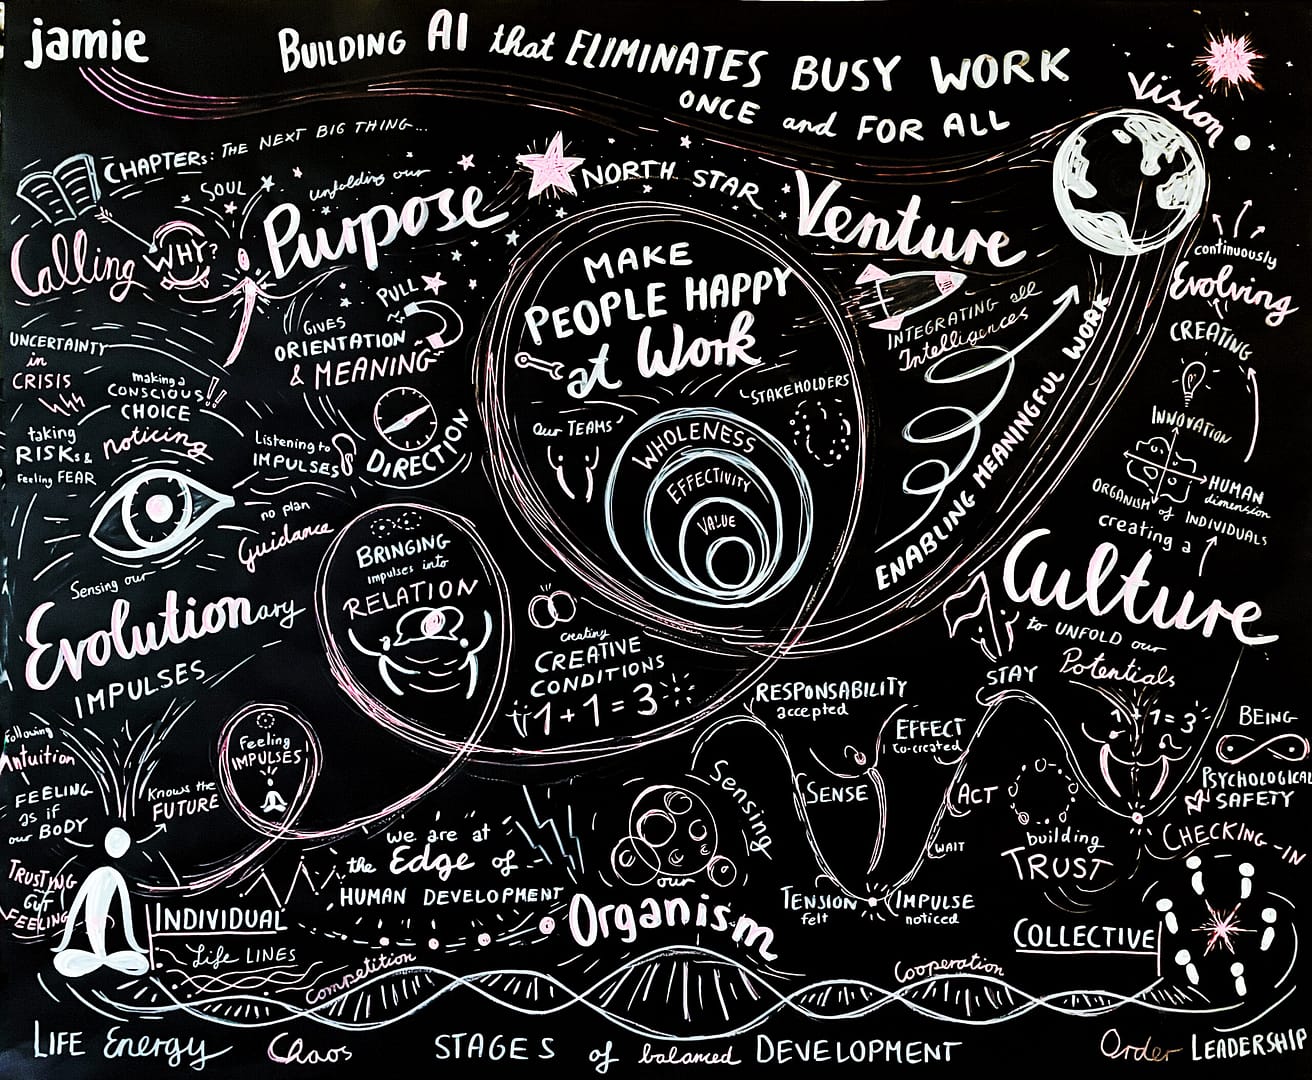 jamie
BUILDING AI that ELIMINATES BUSY WORK
ONCE and FOR ALL
Vision
CHAPTERs: THE NEXT BIG THING...
SOUL
unfolding our
Purpose
Calling
WHY?
NORTH STAR
Venture
MAKE
PEOPLE HAPPY
at Work
PULL
GIVES
ORIENTATION
& MEANING
DIRECTION
UNCERTAINTY
in
CRISIS
making a
CONSCIOUS!!
CHOICE
taking
RISKs &
Feeling FEAR
noticing
Listening to
IMPULSES
no plan
Guidance
Sensing our
Evolutionary
IMPULSES
STAKEHOLDERS
our TEAMS
WHOLENESS
EFFECTIVITY
VALUE
INTEGRATING all
Intelligences
ENABLING MEANINGFUL WORK
continuously
Evolving
CREATING
INNOVATION
HUMAN
dimension
ORGANISM of INDIVIDUALS
creating a
Culture
to UNFOLD our
Potentials
BRINGING
impulses into
RELATION
creating
CREATIVE
CONDITIONS
1+1=3
Feeling
IMPULSES
Following
intuition
FEELING
as if
our BODY
Knows the
FUTURE
TRUSTING
GUT
FEELING
INDIVIDUAL
Life LINES
we are at
the Edge of
HUMAN DEVELOPMENT
our
Organism
Sensing
RESPONSABILITY
accepted
EFFECT
co-created
SENSE
ACT
WAIT
TENSION
felt
IMPULSE
noticed
STAY
building
TRUST
1+1=3
BEING
PSYCHOLOGICAL
SAFETY
CHECKING-IN
COLLECTIVE
Competition
Cooperation
LIFE Energy
Chaos
STAGES of balanced DEVELOPMENT
Order
LEADERSHIP